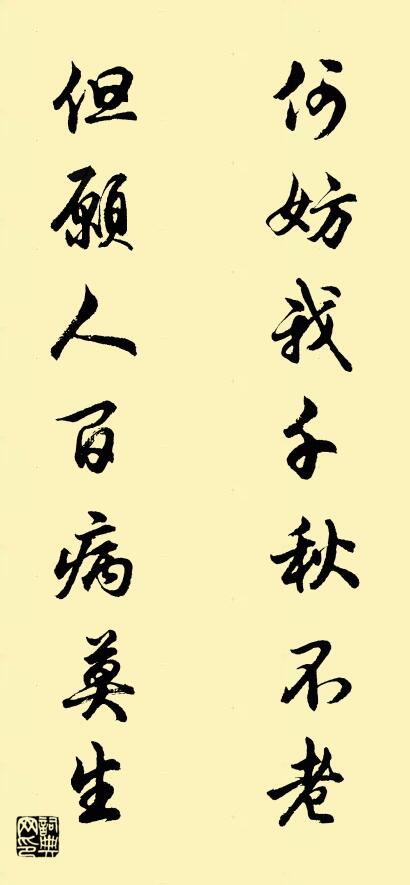 何妨我千秋不老
但愿人百病莫生
詞典网印